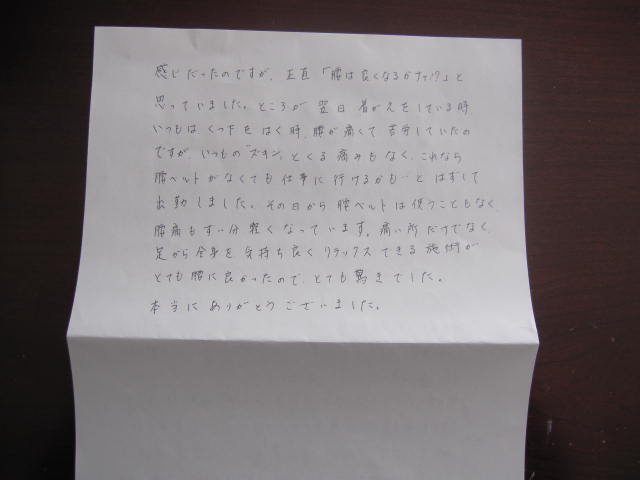 感じだったのですが、正直「腰は良くなるかナァ!?」と
思っていました。ところが翌日着がえをしている時、
いつもは、くつ下をはく時、腰が痛くて苦労していたの
ですが、いつもの"ズキン"とくる痛みもなく、これなら
腰ベルトがなくても仕事に行けるかも…とはずして
出勤しました。その日から腰ベルトは使うこともなく、
腰痛もずい分軽くなっています。痛い所だけでなく、
足から全身を気持ち良くリラックスできる施術が
とても腰に良かったので、とても驚きでした。
本当にありがとうございました。